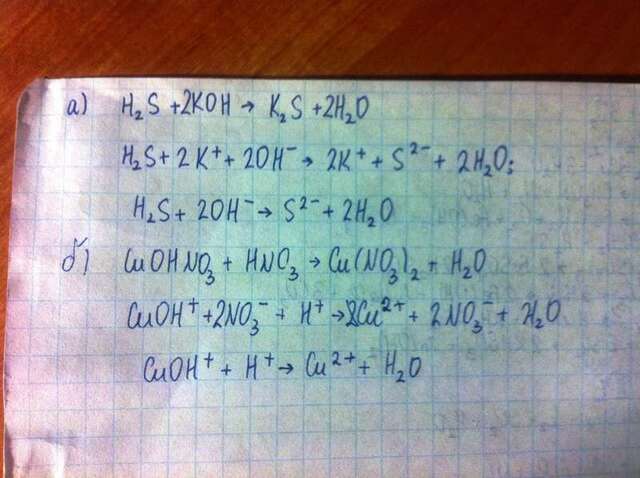 а) H₂S + 2KOH → K₂S + 2H₂O
H₂S + 2K⁺ + 2OH⁻ → 2K⁺ + S²⁻ + 2H₂O;
H₂S + 2OH⁻ → S²⁻ + 2H₂O
б) CuOHNO₃ + HNO₃ → Cu(NO₃)₂ + H₂O
CuOH⁺ + 2NO₃⁻ + H⁺ → Cu²⁺ + 2NO₃⁻ + H₂O
CuOH⁺ + H⁺ → Cu²⁺ + H₂O